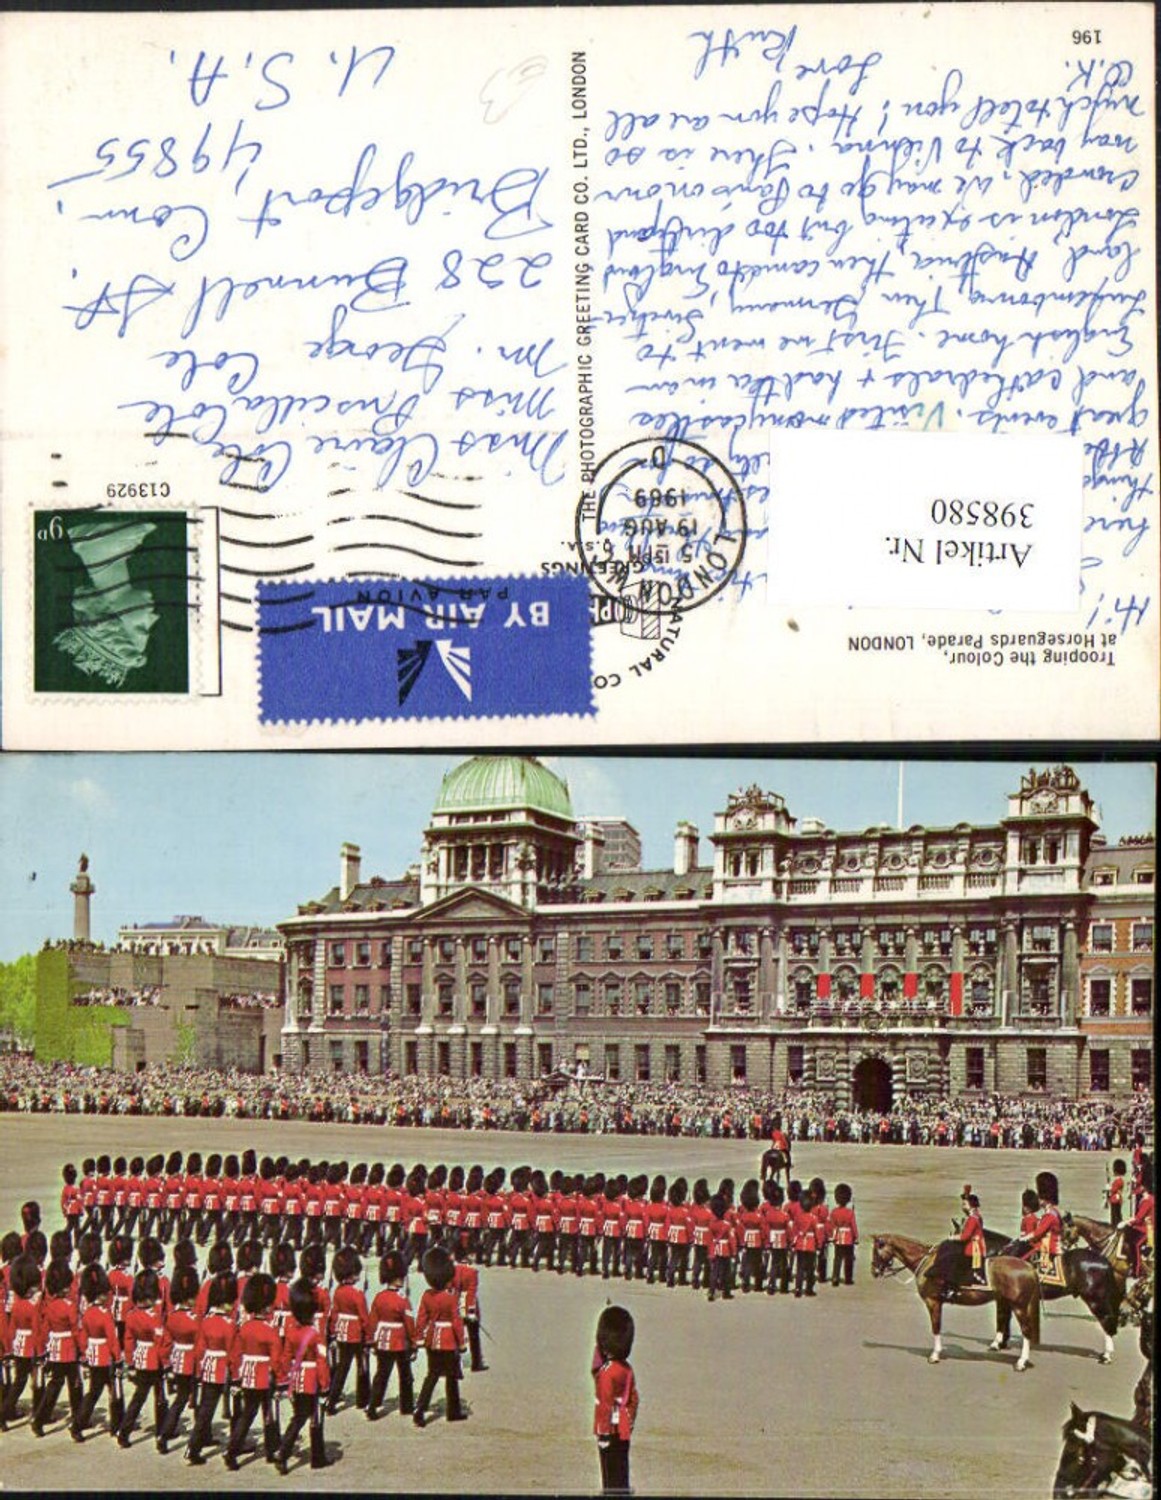 Trooping the Colour,
at Horseguards Parade, LONDON
Artikel Nr.
398580
Hi!
here
things
great events. Visited many castles
and cathedrals + had tea in an
English home. First we went to
Luxembourg, then Germany, Switzer-
land, Austria, then came to England
London is exciting but too dirty and
crowded. We may go to Paris on our
way back to Vienna. There is so
much to tell you! Hope you are all
O.K.
Love, Ruth
196
THE PHOTOGRAPHIC GREETING CARD CO. LTD., LONDON
NATURAL CO
GREETINGS
LONDON W.C.
5 15 PM
19 AUG
1969
D
BY AIR MAIL
PAR AVION
9D
C13929
Miss Claire Cole
Miss Priscilla Cole
Mr. George Cole
228 Bunnell St.
Bridgeport, Conn.
49855
U. S. A.